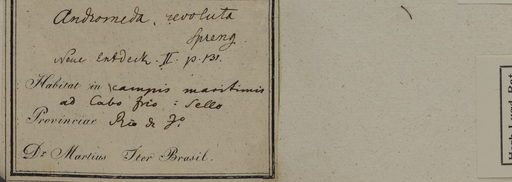 Andromeda revoluta
Spreng.
Neue Entdeck. II. p. 131.
Habitat in campis maritimis
ad Cabo frio: Sello
Provinciae Rio de Jo.
Dr Martius Iter Brasil.